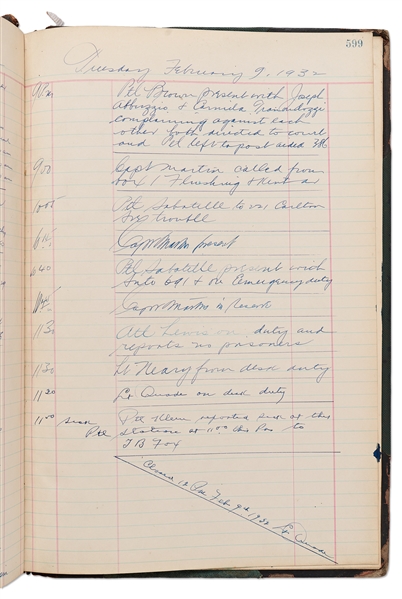 599
Tuesday February 9, 1932
Ptl Brown present with Joseph
Abbuzzio & Carmela
complaining against each
other both directed to court
and Ptl left to post aided 316
900 Capt Martin called from
box 1 Flushing & Kent av
1005 Ptl Sabatelle to 1021 Carlton
ave trouble
Capt Martin present
1140 Ptl Sabatelle present with
auto 691 & on emergency duty
Capt Martin is present
1130 Att Lewis on duty and
reports no prisoners
1130 Lt Neary from desk duty
1130 Lt Quade on desk duty
1100 Sick Ptl Ptl Klein reported sick at this
station at 1100
TB Fox
Closed 12 PM Feb 9th 1932 Lt Quade